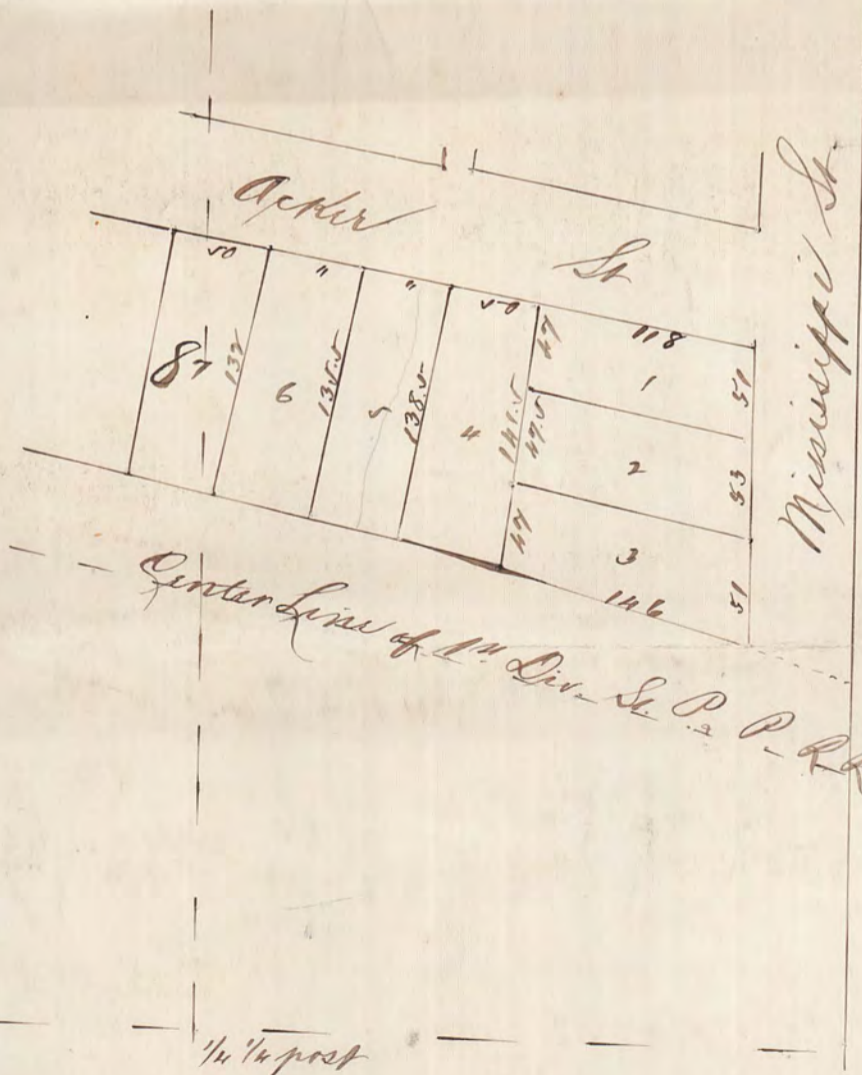 Acker St
Mississippi St.
50 " " 50 118
87 137 6 135.5 5 138.5 4 141.5
47 1 51
47.5 2 53
47 3 51
146
Center Line of 1st Div. St. P. & P. R.R.
1/4 1/4 post